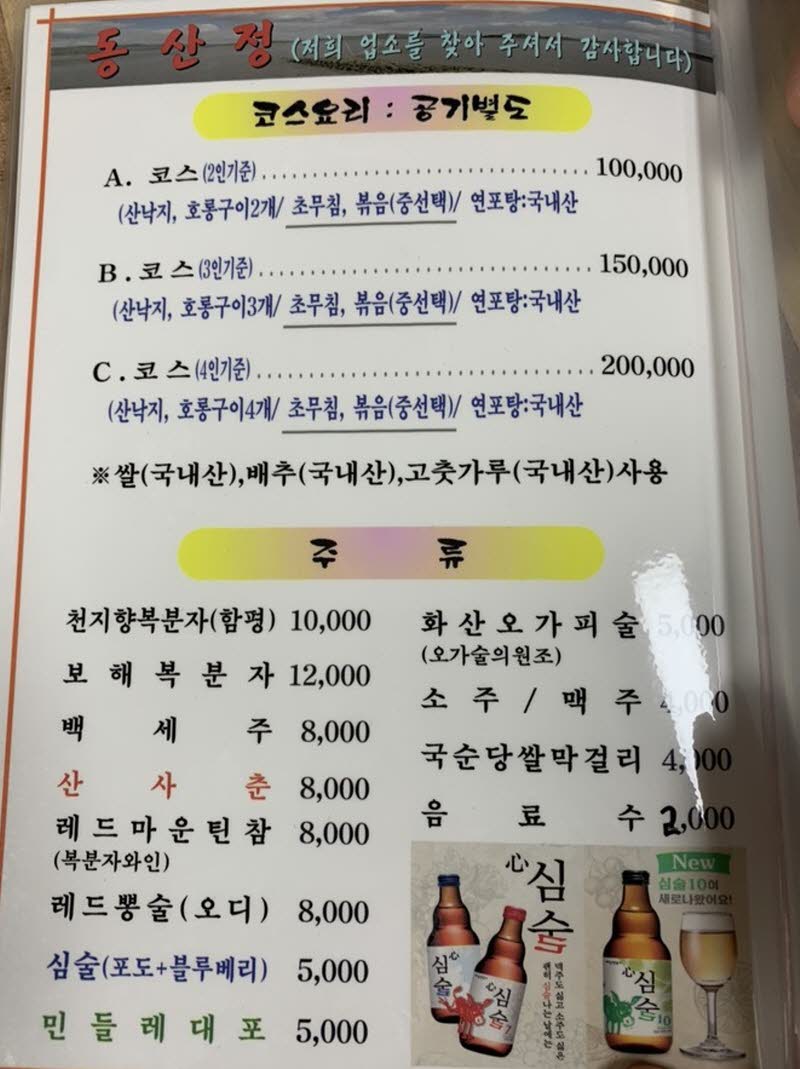 동산정 (저희 업소를 찾아 주셔서 감사합니다)
코스요리 : 공기별도
A. 코스(2인기준) 100,000
(산낙지, 호롱구이2개/ 초무침, 볶음(중선택)/ 연포탕:국내산
B. 코스(3인기준) 150,000
(산낙지, 호롱구이3개/ 초무침, 볶음(중선택)/ 연포탕:국내산
C. 코스(4인기준) 200,000
(산낙지, 호롱구이4개/ 초무침, 볶음(중선택)/ 연포탕:국내산
※쌀(국내산),배추(국내산),고춧가루(국내산)사용
주류
천지향복분자(함평) 10,000
보해복분자 12,000
백세주 8,000
산사춘 8,000
레드마운틴참 8,000
(복분자와인)
레드뽕술(오디) 8,000
심술(포도+블루베리) 5,000
민들레대포 5,000
화산오가피술 5,000
(오가술의원조)
소주/맥주 4,000
국순당쌀막걸리 4,000
음료수 2,000
心 심술
맥주도 싫고 소주도 싫은
괜히 심술나는 날에는
New
심술10이
새로나왔어요!
心 심술
心 심술 7
心 심술 10